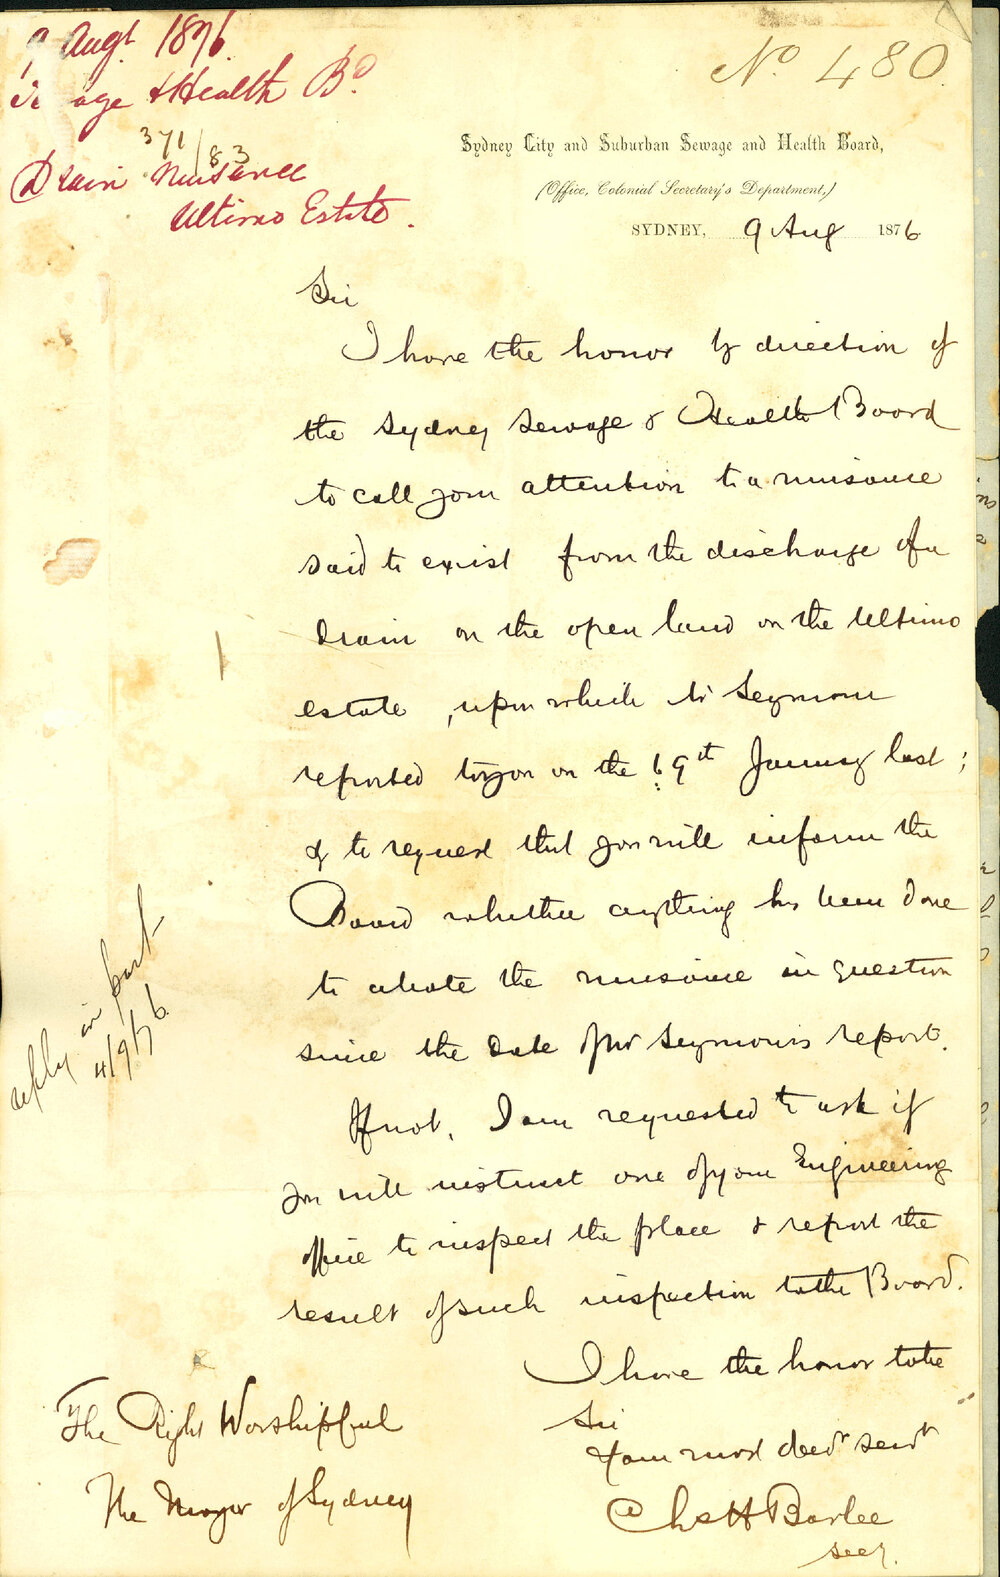 9 Augt. 1876.
age & Health Bd.
371/83
Drain Nuisance
Ultimo Estate.
No. 480.
Sydney City and Suburban Sewage and Health Board,
(Office, Colonial Secretary's Department,)
SYDNEY, 9 Aug 1876
Sir
I have the honor by direction of
the Sydney Sewage & Health Board
to call your attention to a nuisance
said to exist from the discharge of a
drain on the open land on the Ultimo
estate, upon which Mr Seymour
reported to you on the 19th January last;
& to request that you will inform the
Board whether anything has been done
to abate the nuisance in question
since the date of Mr Seymour's report.
If not, I am requested to ask if
you will instruct one of your Engineering
office to inspect the place & report the
result of such inspection to the Board.
I have the honor to be
Sir
Your most obedt servt
Chas H Barlee
Secy.
The Right Worshipful
The Mayor of Sydney
reply in part
4/9/76